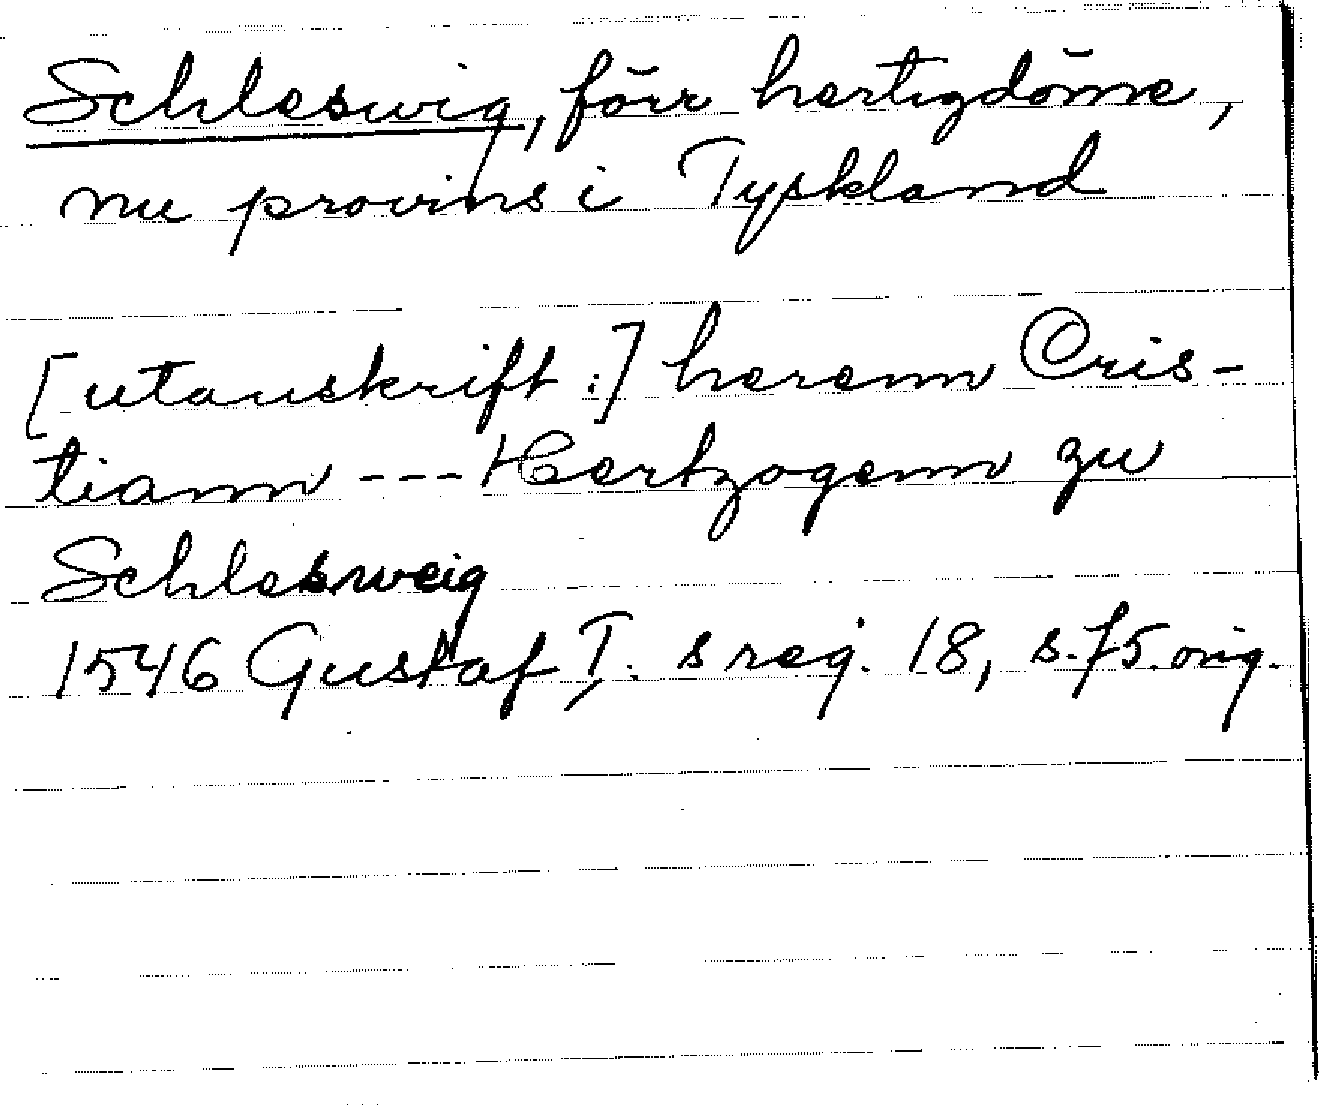 Schleswig, förr hertigdöme,
nu provins i Tyskland
[utanskrift:] herenn Cris-
tiann --- Hertzogenn zu
Schlesweig
1546 Gustaf I. s reg. 18, s. 75. orig.